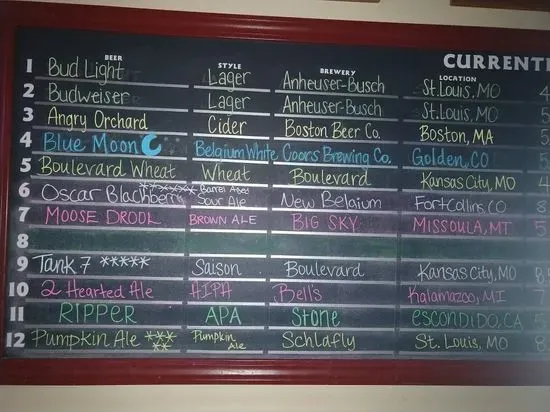 CURRENT
BEER STYLE BREWERY LOCATION
1 Bud Light Lager Anheuser-Busch St. Louis, MO 4
2 Budweiser Lager Anheuser-Busch St. Louis, MO 5
3 Angry Orchard Cider Boston Beer Co. Boston, MA 5
4 Blue Moon Belgium White Coors Brewing Co. Golden, CO 5
5 Boulevard Wheat Wheat Boulevard Kansas City, MO 4
6 Oscar Blackberry ******* Barrel Aged Sour Ale New Belgium Fort Collins, CO 8
7 MOOSE DROOL BROWN ALE BIG SKY MISSOULA, MT 5
8
9 Tank 7 ***** Saison Boulevard Kansas City, MO 8
10 2 Hearted Ale AIPA Bell's Kalamazoo, MI 7
11 RIPPER APA Stone ESCONDIDO, CA 5
12 Pumpkin Ale ***** Pumpkin Ale Schlafly St. Louis, MO 8